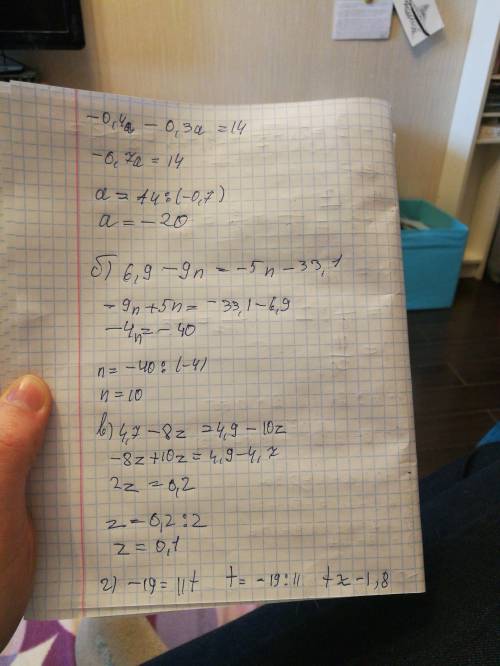 -0,4a - 0,3a = 14
-0,7a = 14
a = 14 : (-0,7)
a = -20
б) 6,9 - 9n = -5n - 33,1
-9n + 5n = -33,1 - 6,9
-4n = -40
n = -40 : (-4)
n = 10
в) 4,7 - 8z = 4,9 - 10z
-8z + 10z = 4,9 - 4,7
2z = 0,2
z = 0,2 : 2
z = 0,1
г) -19 = 11t t = -19 : 11 t ≈ -1,8